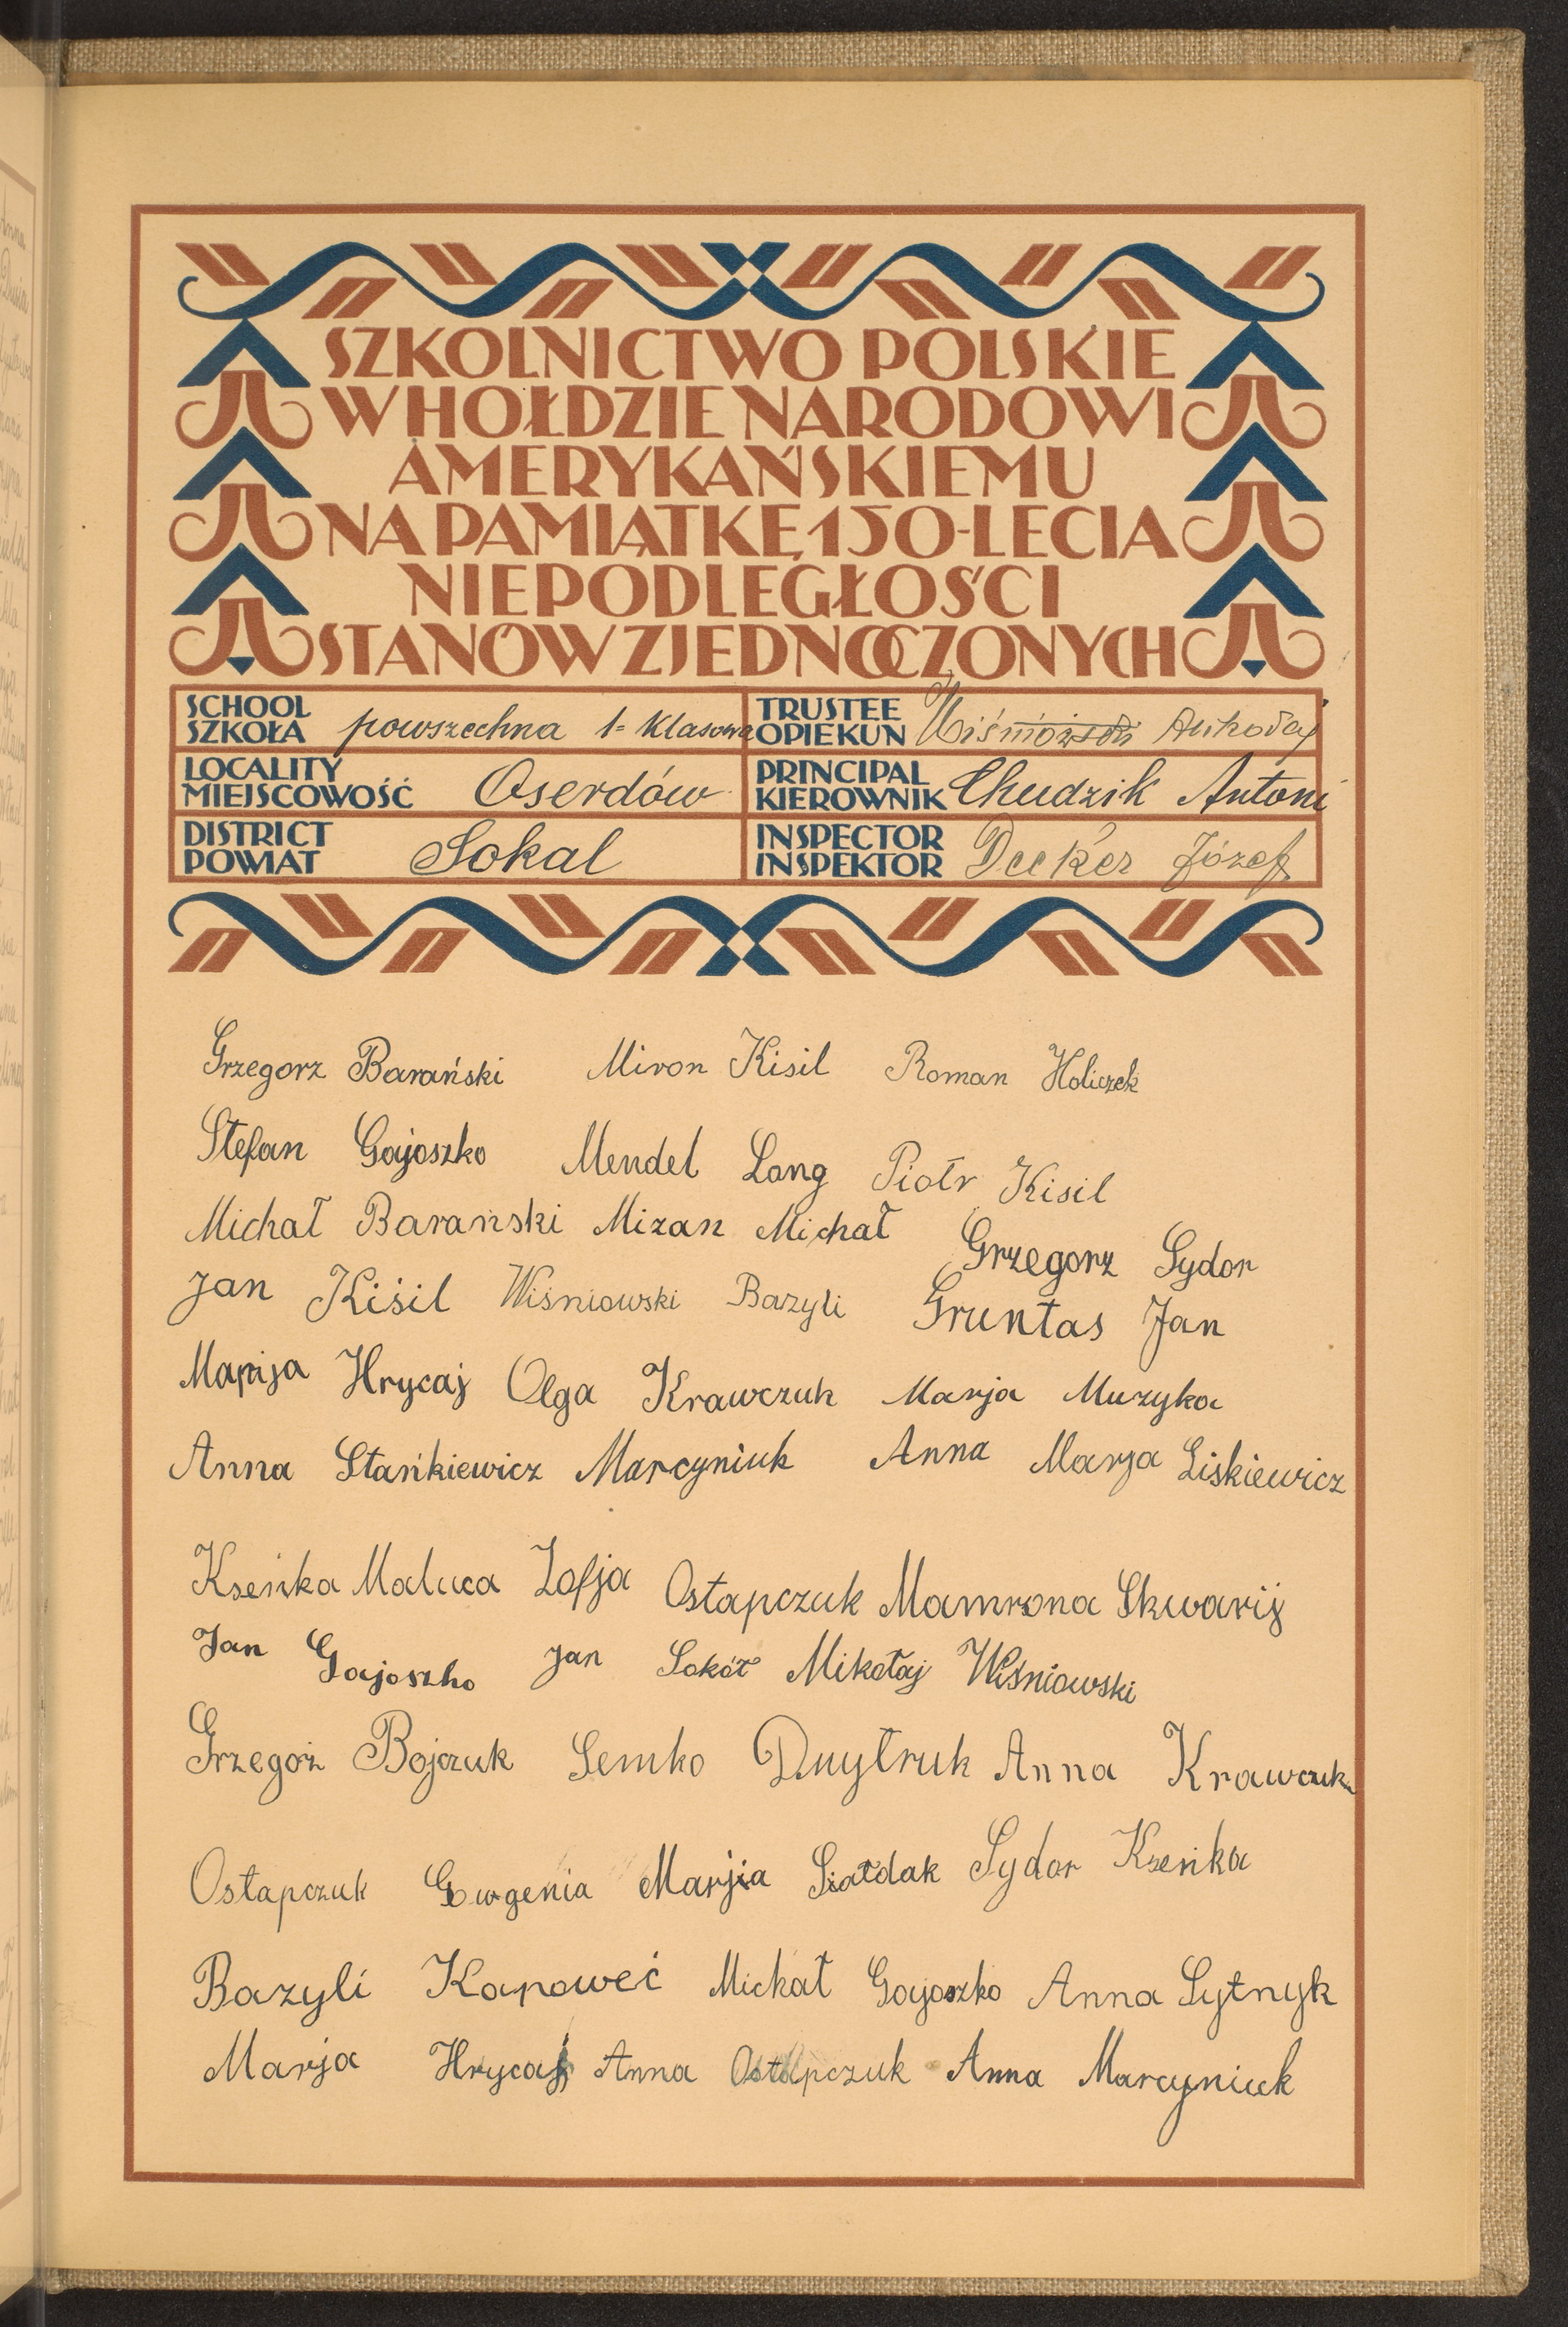 SZKOLNICTWO POLSKIE
W HOŁDZIE NARODOWI
AMERYKAŃSKIEMU
NA PAMIĄTKĘ 150-LECIA
NIEPODLEGŁOŚCI
STANÓW ZJEDNOCZONYCH
SCHOOL
SZKOŁA powszechna 1-klasowa
TRUSTEE
OPIEKUN
LOCALITY
MIEJSCOWOŚĆ Oserdów
PRINCIPAL
KIEROWNIK Chudzik Antoni
DISTRICT
POWIAT Sokal
INSPECTOR
INSPEKTOR Decker Józef
Grzegorz Barański Miron Kisil Roman Holiczek
Stefan Gajoszko Mendel Lang Piotr Kisil
Michał Barański Mizan Michał Grzegorz Sydor
Jan Kiśil Wiśniowski Bazyli Gruntas Jan
Marija Hrycaj Olga Krawczuk Marja Muzyka
Anna Stańkiewicz Marcyniuk Anna Marja Liskiewicz
Kseńka Maluca Zofja Ostapczuk Mamrona Skwarij
Jan Gajoszko Jan Sokół Mikołaj Wiśniowski
Grzegoż Bojczuk Semko Dmytruk Anna Krawczuk
Ostapczuk Ewgenia Marjia Siatdak Sydor Kseńka
Bazyli Kapoweć Michał Gajoszko Anna Sytnyk
Marja Hrycaj Anna Ostapczuk Anna Marcyniuk